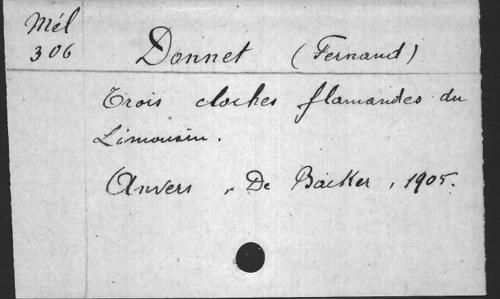 Mél
306
Donnet (Fernand)
Trois cloches flamandes du
Limousin.
Anvers, De Backer, 1905.